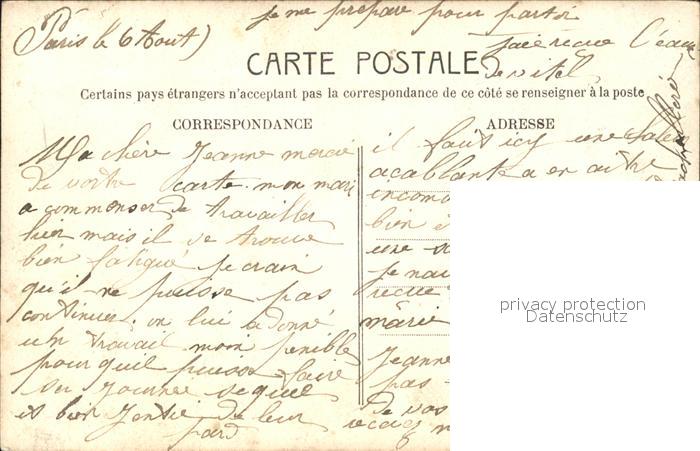 je me prépare pour partir
Paris le 6 Aout)
j'ai reçue l'eau
de vitel
CARTE POSTALE
Certains pays étrangers n'acceptant pas la correspondance de ce côté se renseigner à la poste
CORRESPONDANCE
ADRESSE
Ma chère Jeanne merci
de votre carte. mon mari
a commenser de travailler
hier mais il se trouve
bien fatigué je crain
qu'il ne puisse pas
continuer. on lui a donné
un travail moin penible
pour quil puisse faire
ser journée
es bien Jentie de leur
pard
il fait icy une
acablante a en
incomo
bien
une
je
recue
marie
Jeanne
pas
de vos
privacy protection
Datenschutz